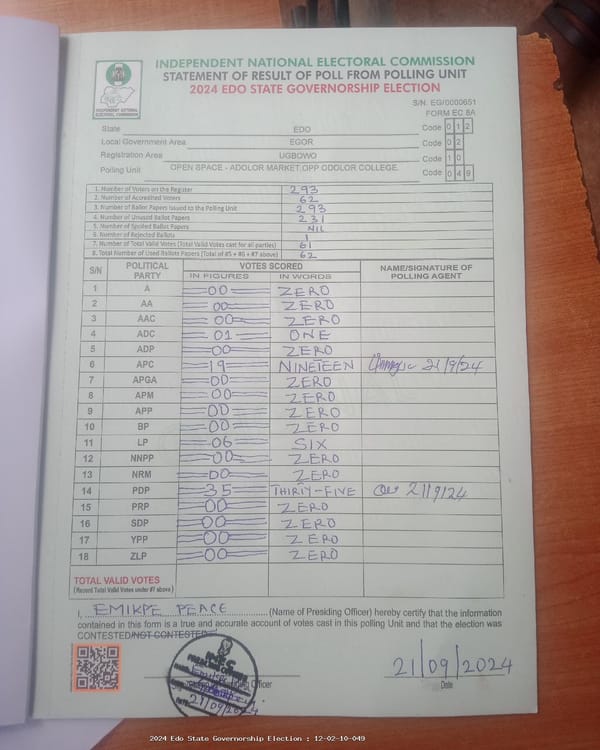 INDEPENDENT NATIONAL ELECTORAL COMMISSION
STATEMENT OF RESULT OF POLL FROM POLLING UNIT
2024 EDO STATE GOVERNORSHIP ELECTION
INDEPENDENT NATIONAL ELECTORAL COMMISSION
S/N. EG/0000651
FORM EC 8A
State EDO Code 0 1 2
Local Government Area EGOR Code 0 2
Registration Area UGBOWO Code 1 0
Polling Unit OPEN SPACE - ADOLOR MARKET OPP ODOLOR COLLEGE. Code 0 4 9
1. Number of Voters on the Register 293
2. Number of Accredited Voters 62
3. Number of Ballot Papers Issued to the Polling Unit 293
4. Number of Unused Ballot Papers 231
5. Number of Spoiled Ballot Papers NIL
6. Number of Rejected Ballots 1
7. Number of Total Valid Votes (Total Valid Votes cast for all parties) 61
8. Total Number of Used Ballots Papers (Total of #5 + #6 + #7 above) 62
S/N POLITICAL PARTY VOTES SCORED NAME/SIGNATURE OF POLLING AGENT
IN FIGURES IN WORDS
1 A 00 ZERO
2 AA 00 ZERO
3 AAC 00 ZERO
4 ADC 01 ONE
5 ADP 00 ZERO
6 APC 19 NINETEEN 21/9/24
7 APGA 00 ZERO
8 APM 00 ZERO
9 APP 00 ZERO
10 BP 00 ZERO
11 LP 06 SIX
12 NNPP 00 ZERO
13 NRM 00 ZERO
14 PDP 35 THIRTY-FIVE 21/9/24
15 PRP 00 ZERO
16 SDP 00 ZERO
17 YPP 00 ZERO
18 ZLP 00 ZERO
TOTAL VALID VOTES
(Record Total Valid Votes under #7 above)
I, EMIKPE PEACE (Name of Presiding Officer) hereby certify that the information
contained in this form is a true and accurate account of votes cast in this polling Unit and that the election was
CONTESTED/NOT CONTESTED
INEC
PRESIDING OFFICER
21/09/2024
Officer
21/09/2024
Date
2024 Edo State Governorship Election : 12-02-10-049